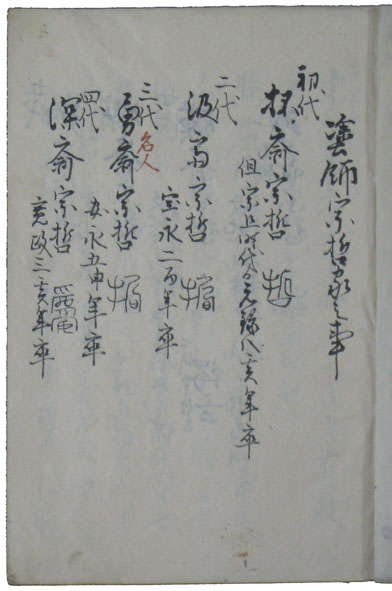 塗師宗哲家之事
初代
枌斎宗哲
但宗旦時代ゟ元禄八亥年卒
二代
汲斎宗哲
宝永二酉年卒
三代
名人
勇斎宗哲
安永五申年卒
四代
深斎宗哲
寛政三亥年卒